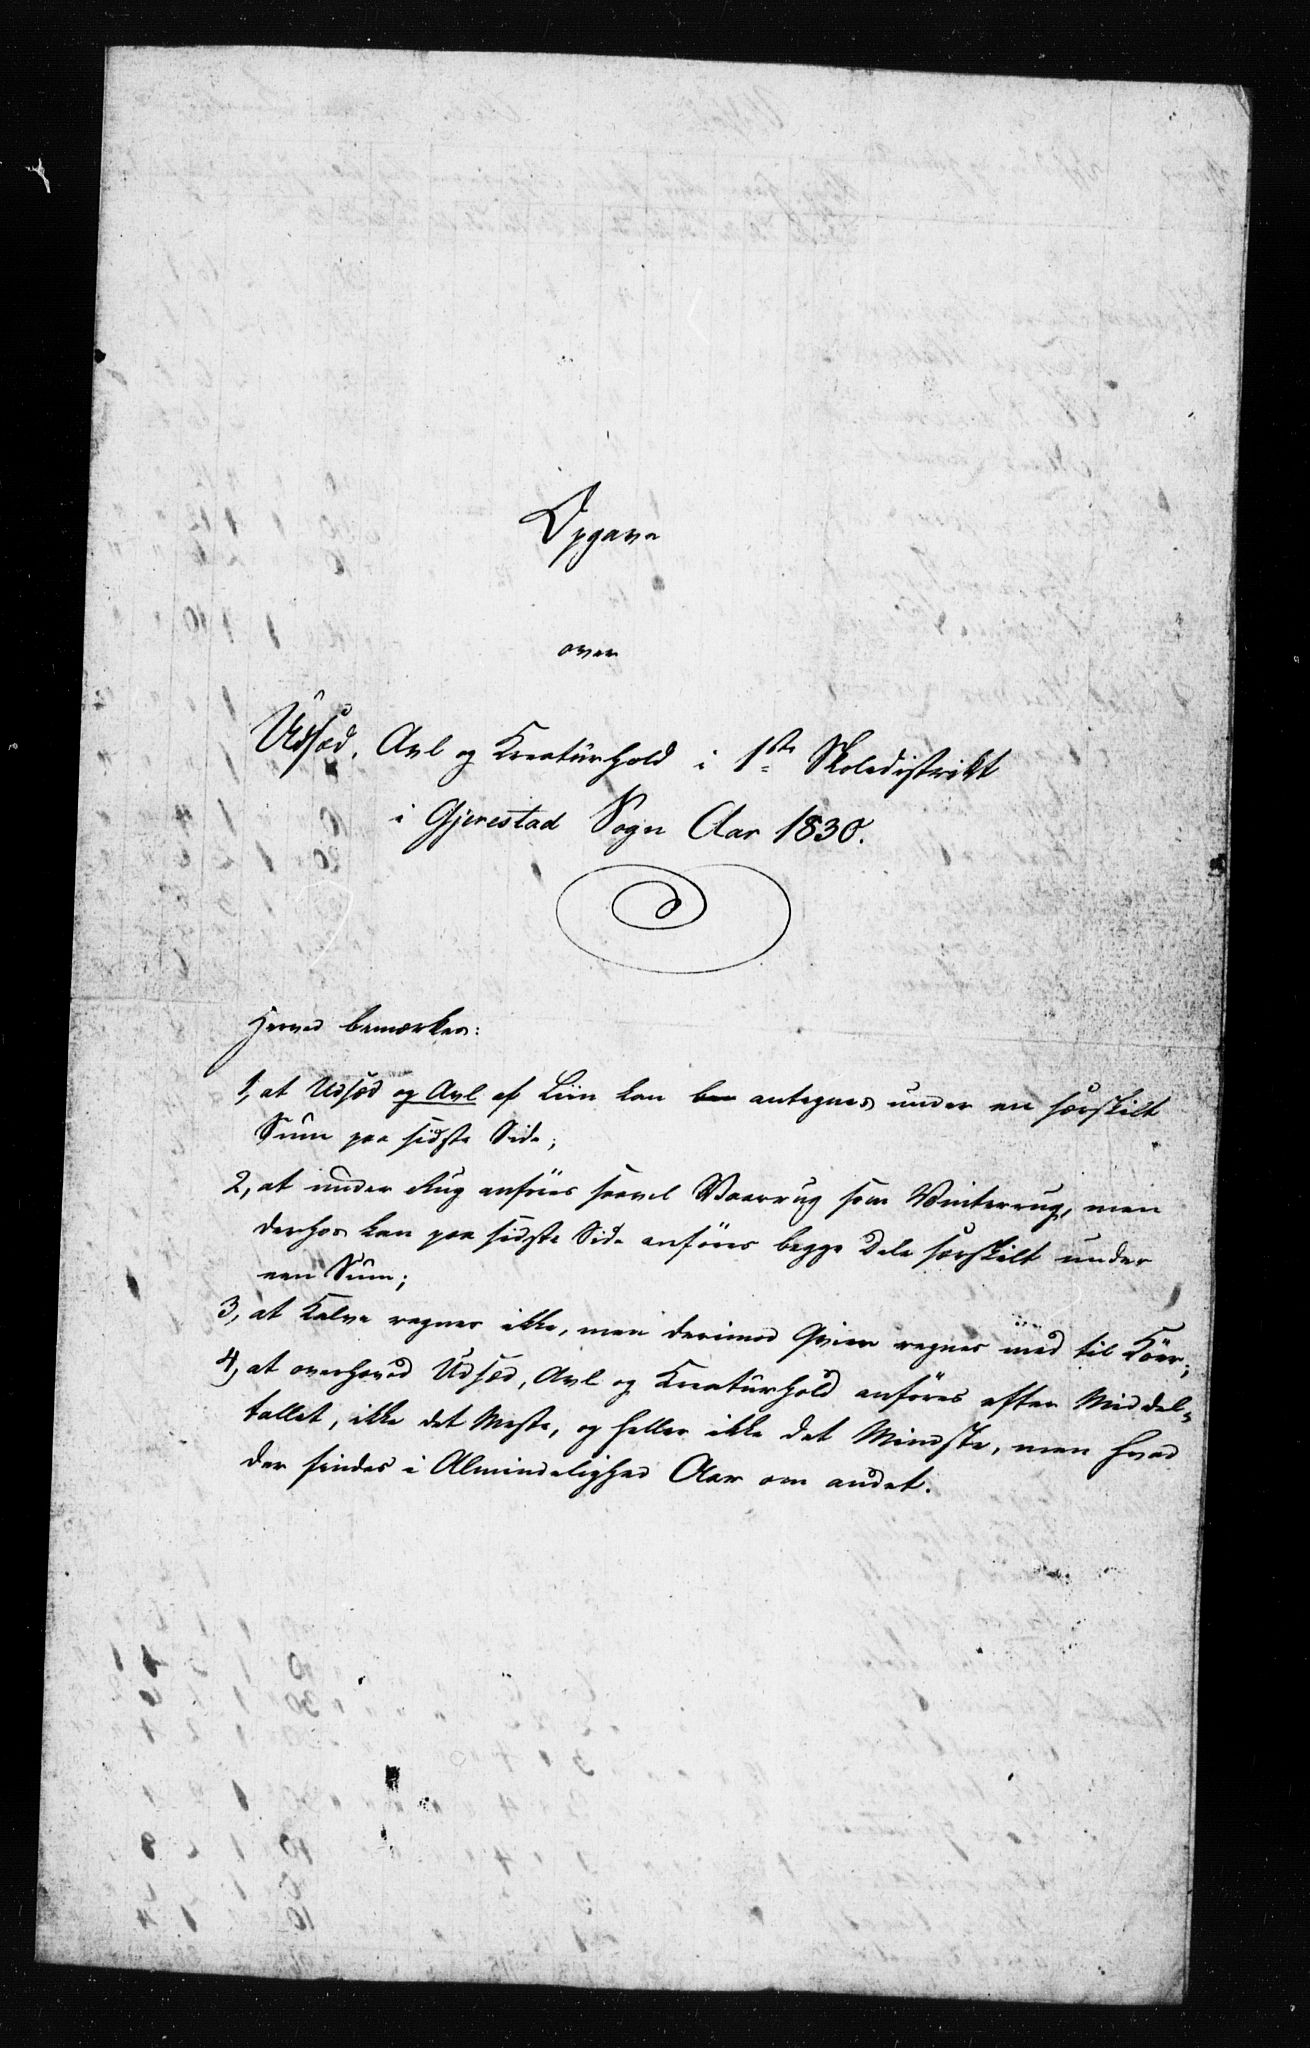 Opgave
over
Udsæd, Avl og Kreaturhold i 1ste Skoledistrikt
i Gjerestad Sogn Aar 1830.
Herved bemærkes:
1, at Udsæd og Avl af Liin kan antegnes under en særskilt
Sum paa sidste Side;
2, at under Rug anföres saavel Vaarrug som Vinterrug, men
derhos kan paa sidste Side anföres begge Dele særskilt under
een Sum;
3, at Kalve regnes ikke, men derimod Qvier regnes med til Köer;
4, at overhoved Udsæd, Avl og Kreaturhold anföres efter Middel-
tallet, ikke det Meste, og heller ikke det Mindste, men hvad
der findes i Almindelighed Aar om andet.